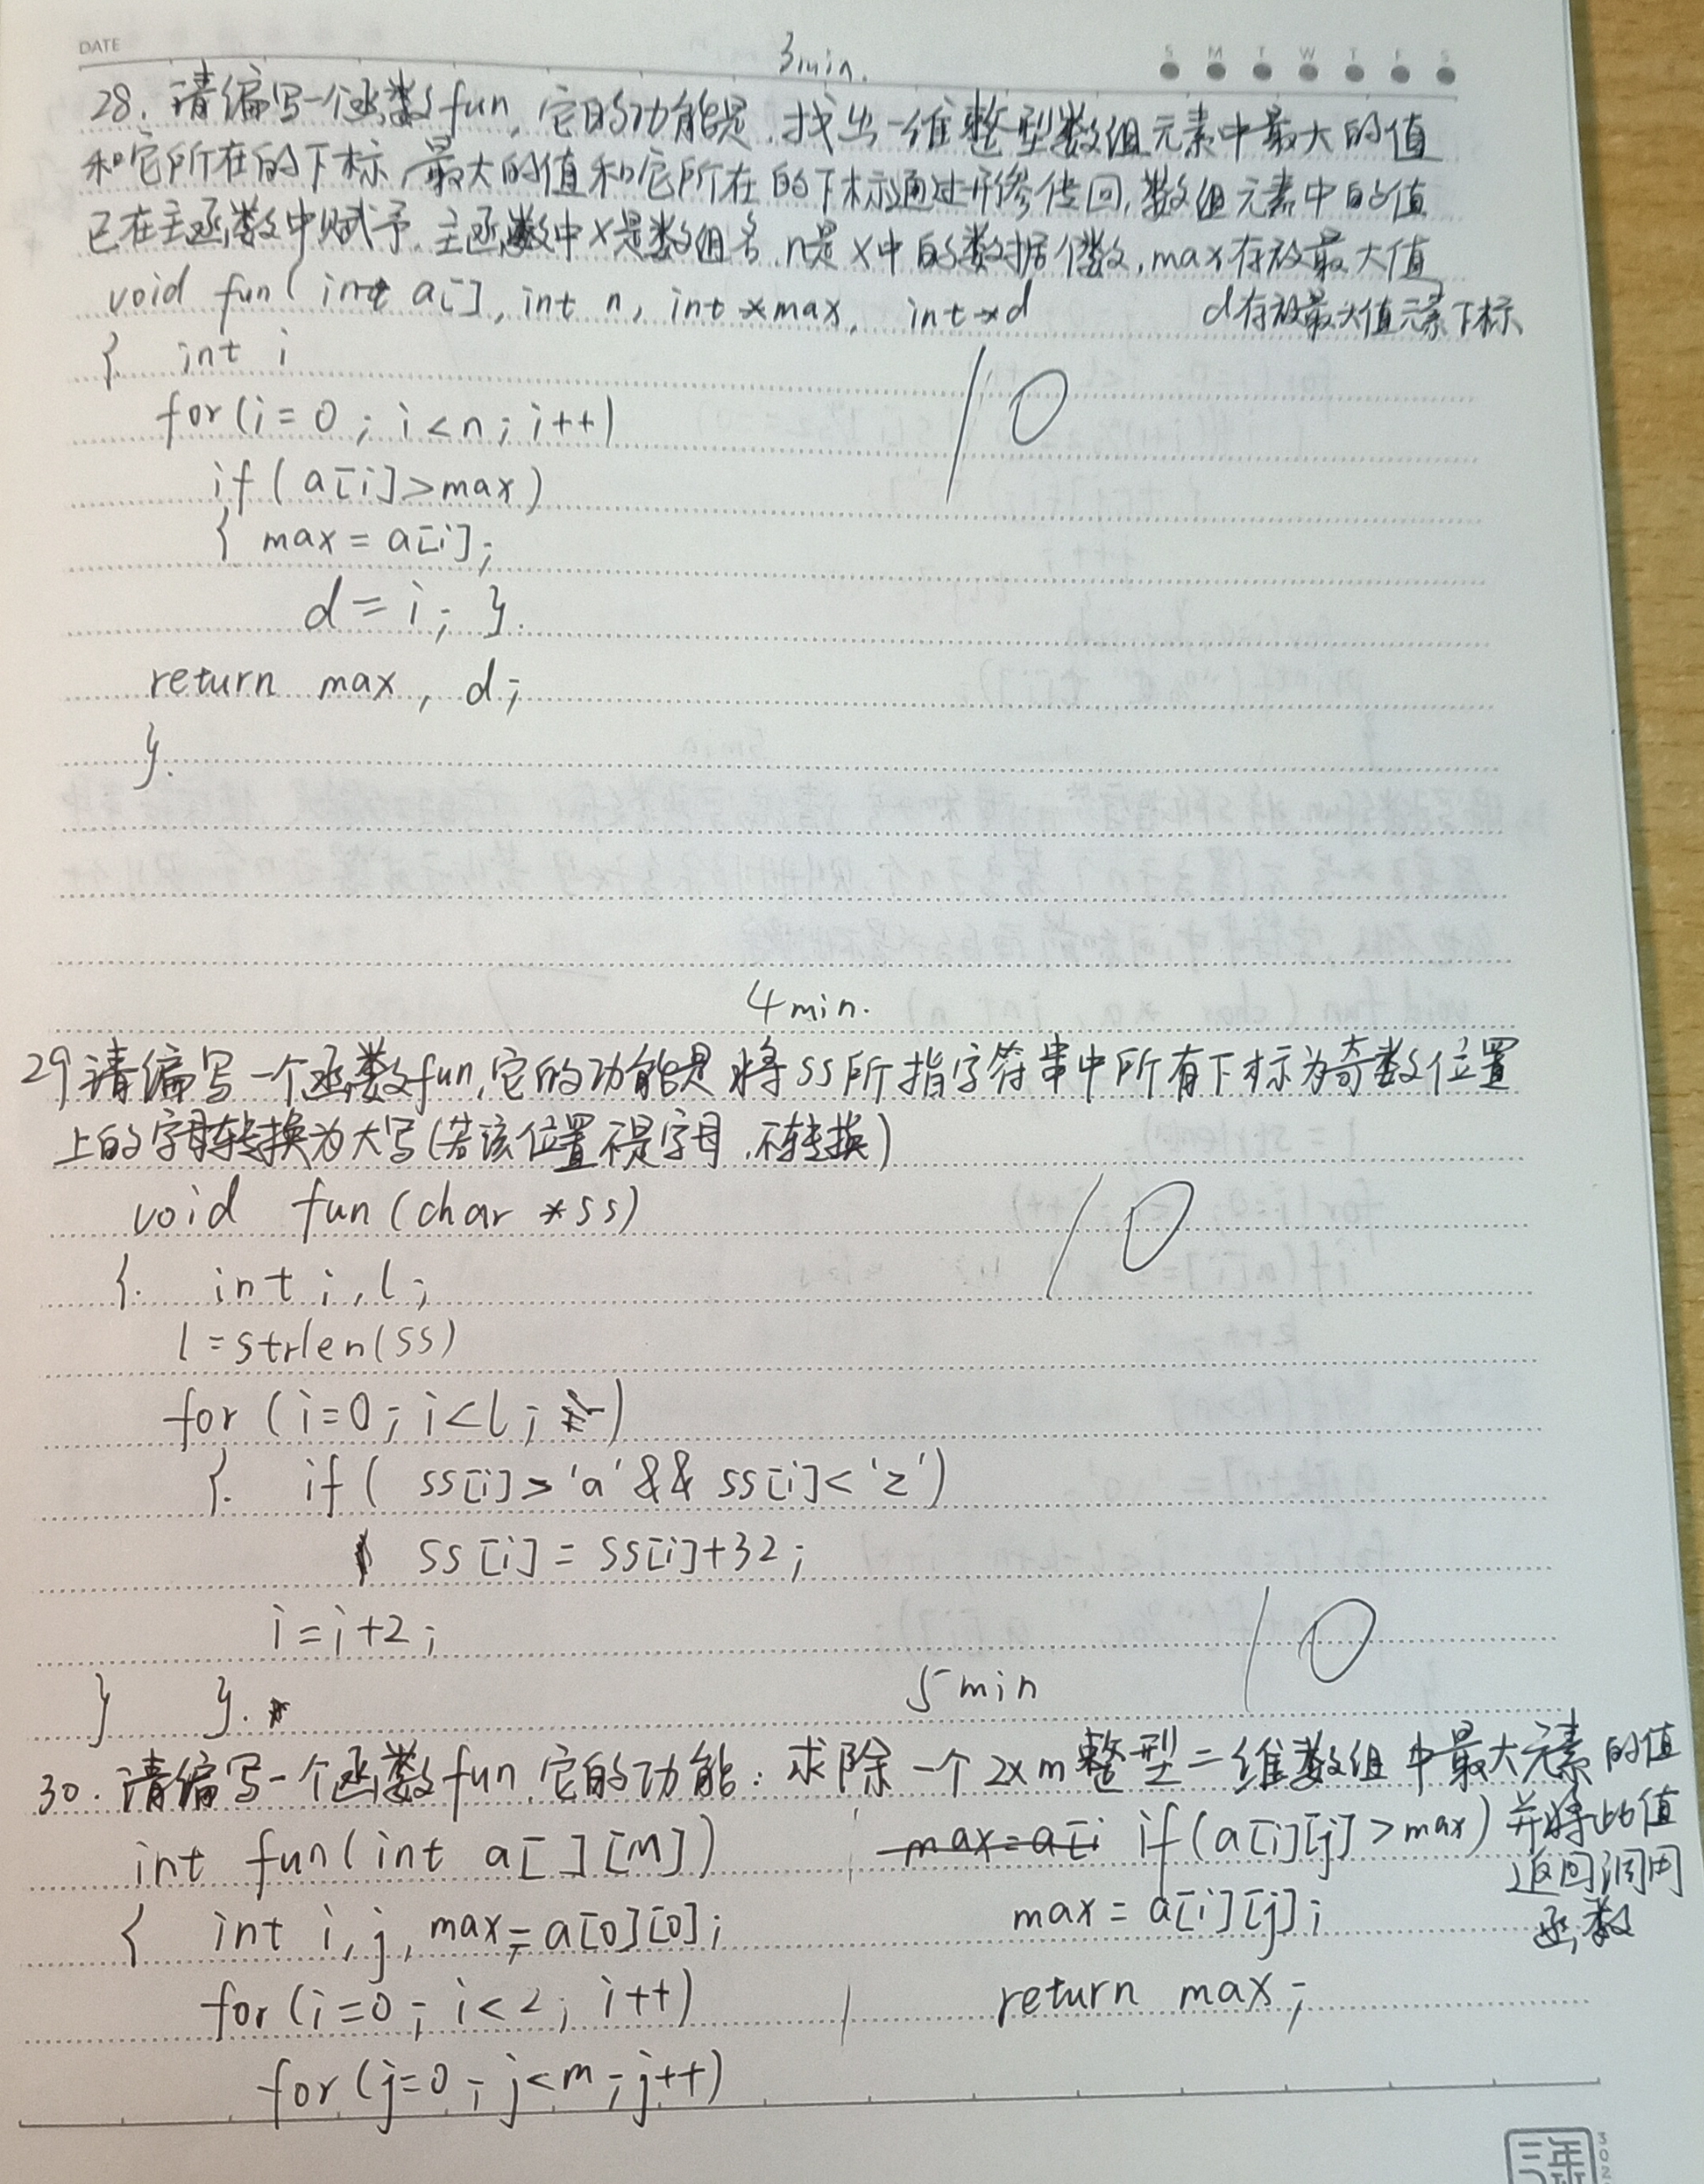 DATE
3min.
S M T W T F S
28. 请编写一个函数fun, 它的功能是, 找出一维整型数组元素中最大的值
和它所在的下标, 最大的值和它所在的下标通过形参传回, 数组元素中的值
已在主函数中赋予. 主函数中x是数组名, n是x中的数据个数, max存放最大值
d存放最大值元素下标
void fun( int a[], int n, int *max, int *d
{ int i
for(i=0; i<n; i++)
if( a[i]>max)
{ max = a[i];
d = i; }.
return max, d;
}.
10
4min.
29 请编写一个函数fun, 它的功能是 将ss所指字符串中所有下标为奇数位置
上的字母转换为大写(若该位置不是字母, 不转换)
void fun(char *ss)
{. int i, l;
l=strlen(ss)
for (i=0; i<l; )
{. if( ss[i]>'a' && ss[i]<'z')
ss[i] = ss[i]+32;
i=i+2;
} }.
10
5min
10
30. 请编写一个函数fun, 它的功能: 求除一个2xm整型二维数组中最大元素的值
并将此值
返回调用
函数
int fun(int a[ ][M])
{ int i, j, max=a[0][0];
for(i=0; i<2; i++)
for(j=0; j<m; j++)
max=a[i if(a[i][j]>max)
max=a[i][j];
return max;
三年